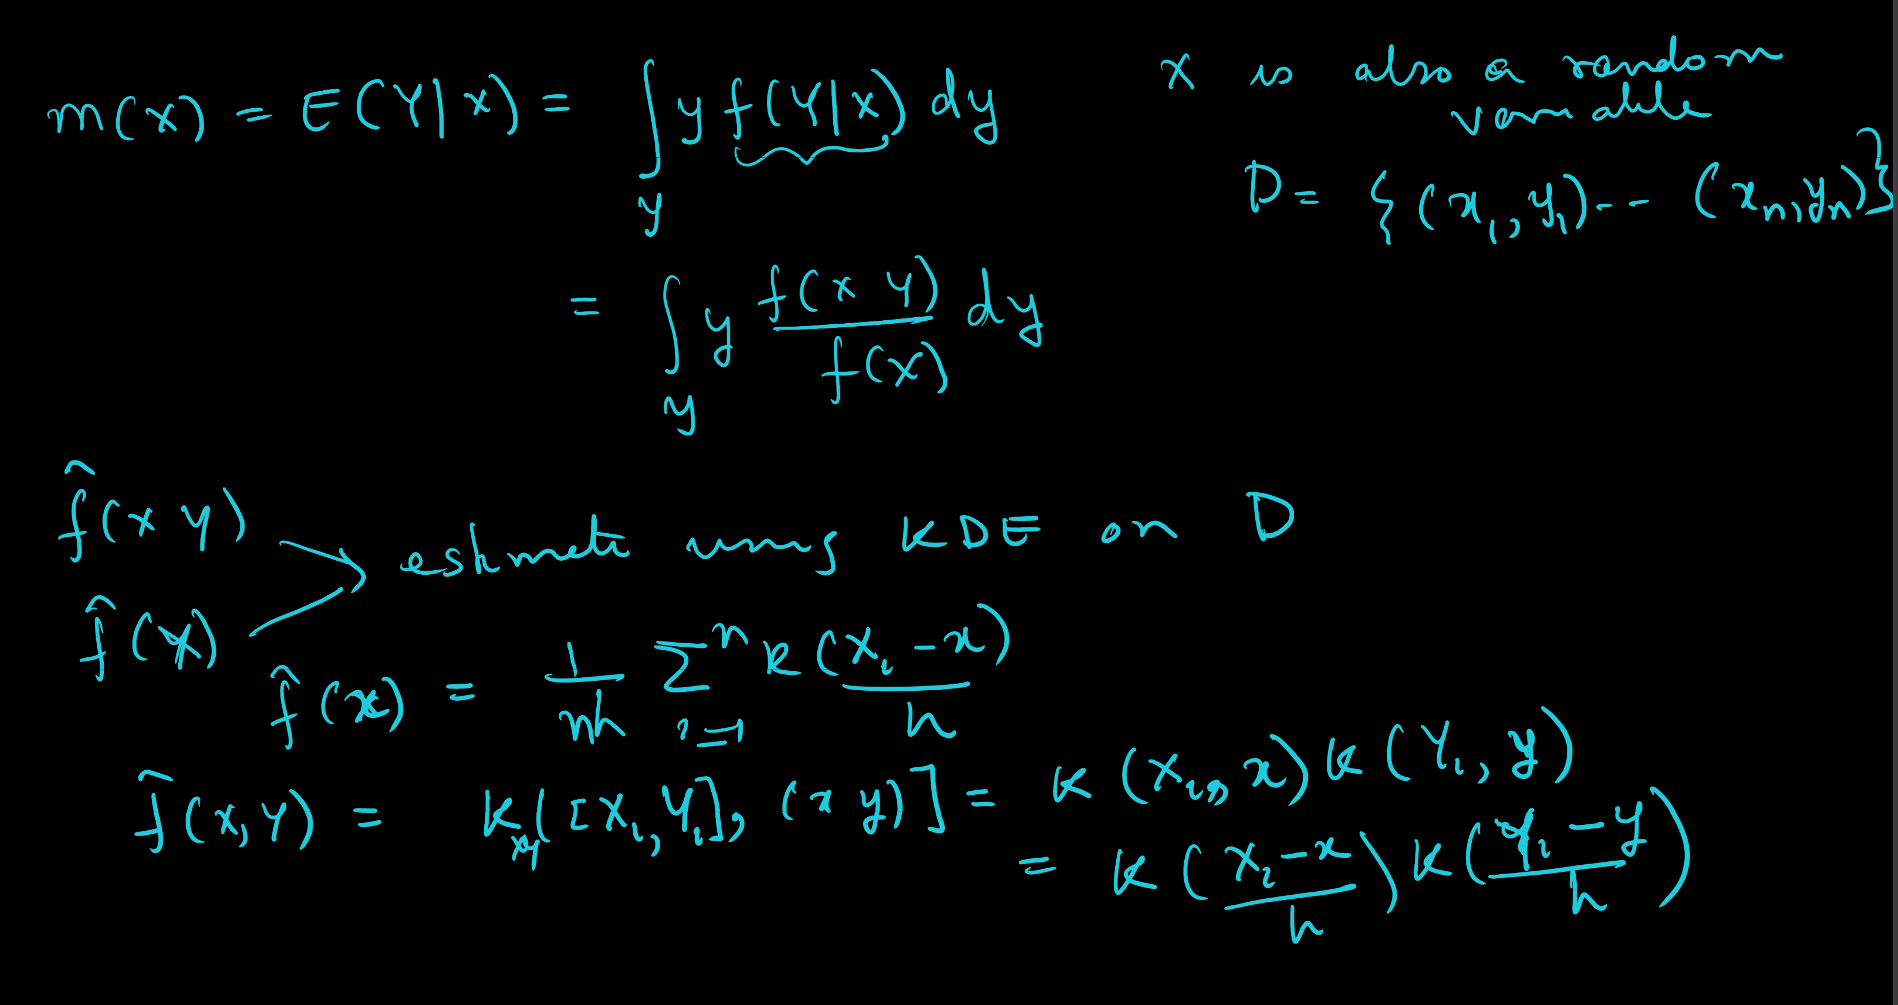 m(x) = E(Y|x) = ∫_y y f(Y|x) dy
x is also a random
variable
D = {(x₁, y₁)-- (xₙ, yₙ)}
= ∫_y y f(x y)/f(x) dy
f̂(x y)
estimate using KDE on D
f̂(x)
f̂(x) = 1/nh ∑_{i=1}^n k(Xᵢ-x)/h
f̂(x,Y) = K_{xy}([Xᵢ,Yᵢ], (x y)] = K(Xᵢ, x) K(Yᵢ, y)
= K((Xᵢ-x)/h) K((Yᵢ-y)/h)